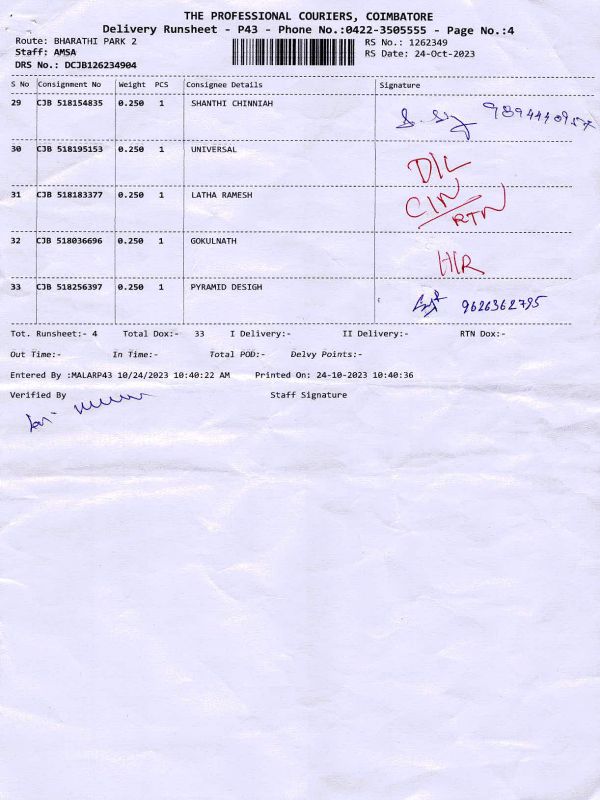 THE PROFESSIONAL COURIERS, COIMBATORE
Delivery Runsheet - P43 - Phone No.:0422-3505555 - Page No.:4
Route: BHARATHI PARK 2 RS No.: 1262349
Staff: AMSA RS Date: 24-Oct-2023
DRS No.: DCJB126234904
S No Consignment No Weight PCS Consignee Details Signature
29 CJB 518154835 0.250 1 SHANTHI CHINNIAH 9894440957
30 CJB 518195153 0.250 1 UNIVERSAL D/L
31 CJB 518183377 0.250 1 LATHA RAMESH C/N
RTN
32 CJB 518036696 0.250 1 GOKULNATH H/R
33 CJB 518256397 0.250 1 PYRAMID DESIGH 9626362795
Tot. Runsheet:- 4 Total Dox:- 33 I Delivery:- II Delivery:- RTN Dox:-
Out Time:- In Time:- Total POD:- Delvy Points:-
Entered By :MALARP43 10/24/2023 10:40:22 AM Printed On: 24-10-2023 10:40:36
Verified By Staff Signature